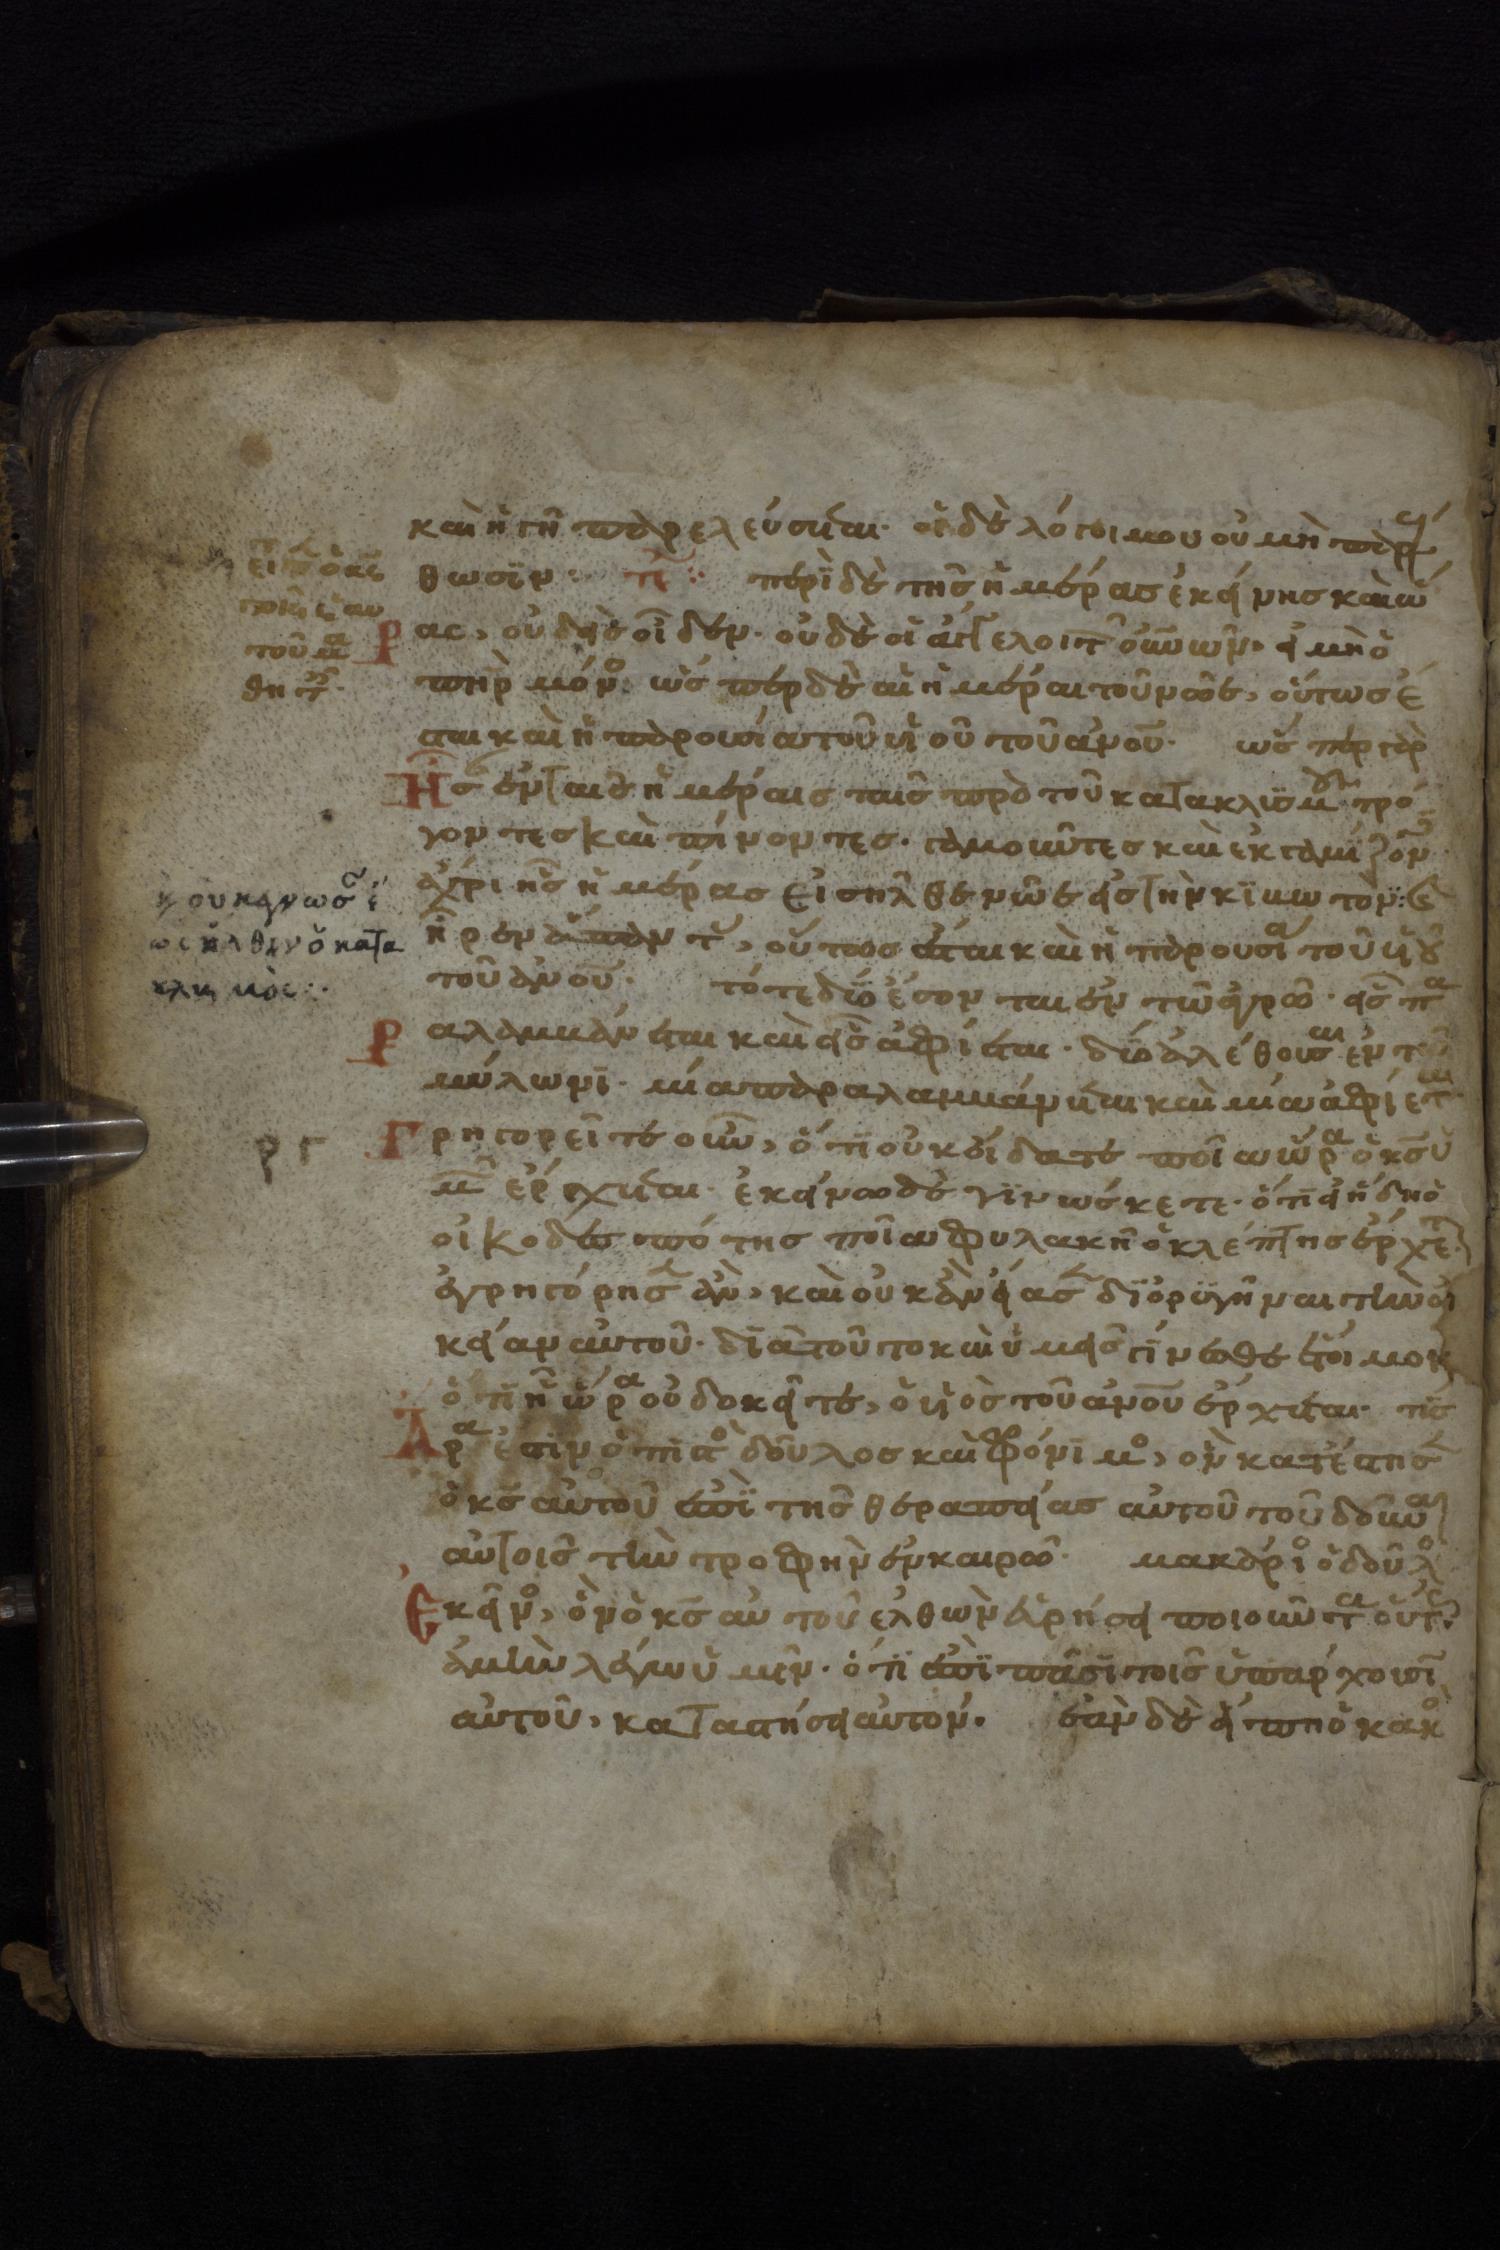 καὶ ἡ γῆ παρελεύσεται· οἱ δὲ λόγοι μου οὐ μὴ παρέλ
θωσιν: τε: περὶ δὲ τῆς ἡμέρας ἐκείνης καὶ ὥ
ρας, οὐδεὶς οἶδεν· οὐδὲ οἱ ἄγγελοι τ οὐνων· εἰ μὴ ὁ
πηρ μόνο· ὥσπερ δὲ αἱ ἡμέραι τοῦ νῶε, οὕτως ἔ
σται καὶ ἡ παρουσία τοῦ υἱοῦ τοῦ ἀνου· ὥσπερ γὰρ
Ης ἐν ταῖς ἡμέραις ταῖς πρὸ τοῦ κατακλισμοῦ τρώ
γοντες καὶ πίνοντες· γαμοῦντες καὶ ἐκγαμίζον
ἄχρι ης ἡμέρας εἰσῆλθε νῶε εἰς τὴν κιβωτόν:
ἦρεν ἅπαντ, οὕτως ἔσται καὶ ἡ παρουσία τοῦ υἱοῦ
τοῦ ἀνου· τότε δύο ἔσονται ἐν τῶ ἀγρῶ· εἷς πα
ραλαμβάνεται καὶ εἷς ἀφίεται· δύο ἀλέθουσαι ἐν τῶ
μύλωνι· μία παραλαμβάνεται καὶ μία ἀφίεται
Γρηγορεῖτε οὖν, ὅτι οὐκ οἴδατε ποία ὥρα ὁ κς ὑ
μῶν ἔρχεται· ἐκεῖνο δὲ γινώσκετε· ὅτι εἰ ἤδει ὁ
οἰκοδεσπότης ποία φυλακῆ ὁ κλέπτης ἔρχετ
ἐγρηγόρησεν ἂν, καὶ οὐκ ἂν εἴασεν διορυγῆναι τὴν οἰ
κείαν αὐτοῦ· διὰ τοῦτο καὶ ὑμεῖς γίνεσθε ἕτοιμοι
ὅτι ἧ ὥρα οὐ δοκεῖτε, ὁ υἱὸς τοῦ ἀνου ἔρχεται· τίς
Αρα ἐστὶν ὁ πιστὸς δοῦλος καὶ φρόνιμο, ὃν κατέστησεν
ὁ κς αὐτοῦ ἐπὶ τῆς θεραπείας αὐτοῦ τοῦ δοῦναι
αὐτοῖς τὴν τροφὴν ἐν καιρῶ· μακάριο ὁ δοῦλο
Εκεῖνο, ὃν ὁ κς αὐτοῦ ἐλθὼν εὑρήσει ποιοῦντα οὕτως
ἀμὴν λέγω ὑμῖν· ὅτι ἐπὶ πᾶσι τοῖς ὑπάρχουσιν
αὐτοῦ, καταστήσει αὐτόν· ἐὰν δὲ εἴπη ὁ κακὸ
εἶπ ὁ κς
τοῦ μα
θητ
κ οὐκ ἔγνωσ ἕ
ως ἦλθεν ὁ κατα
κλισμὸς:
ρ γ